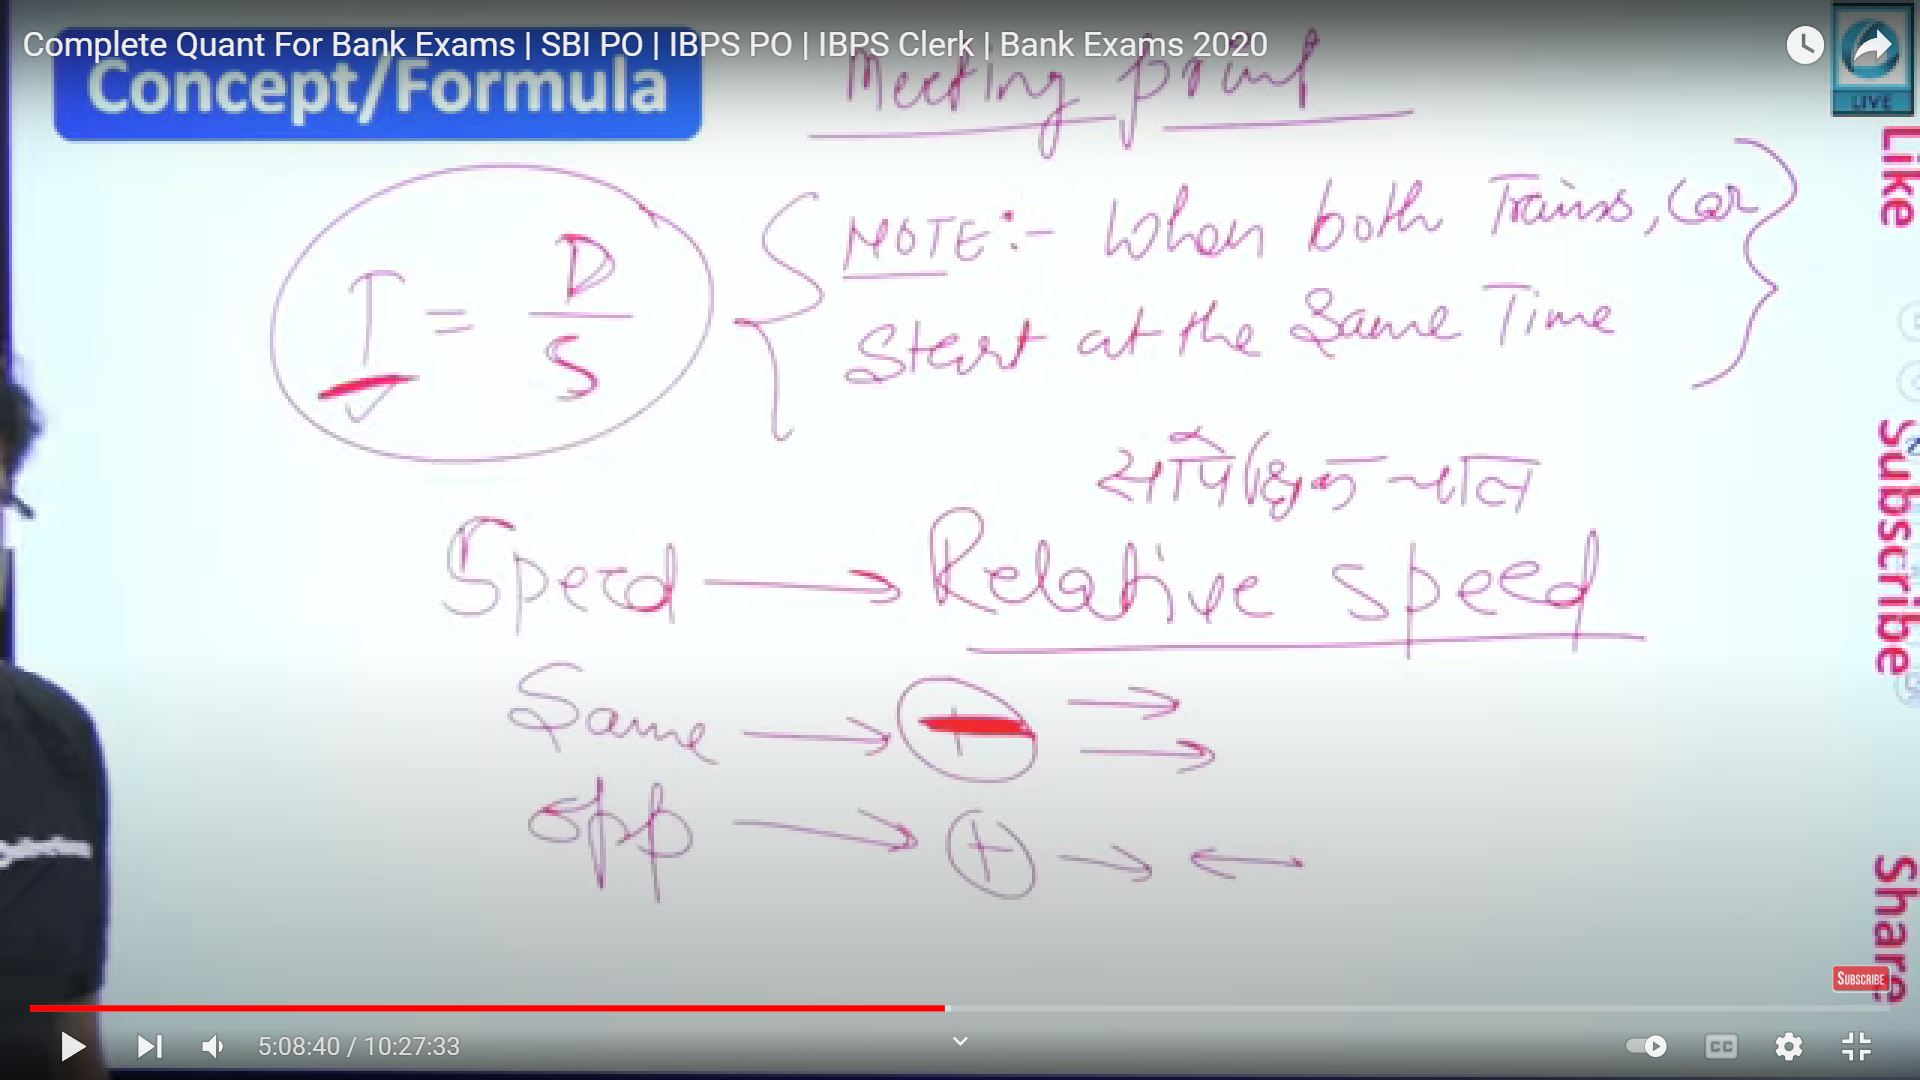 Complete Quant For Bank Exams | SBI PO | IBPS PO | IBPS Clerk | Bank Exams 2020
Concept/Formula
Meeting point
LIVE
T = D
S
NOTE:- When both Trains, Car
Start at the Same Time
सापेक्षिक चाल
Speed → Relative speed
Same → − → →
opp → + → ←
Like
Subscribe
Share
SUBSCRIBE
5:08:40 / 10:27:33
CC